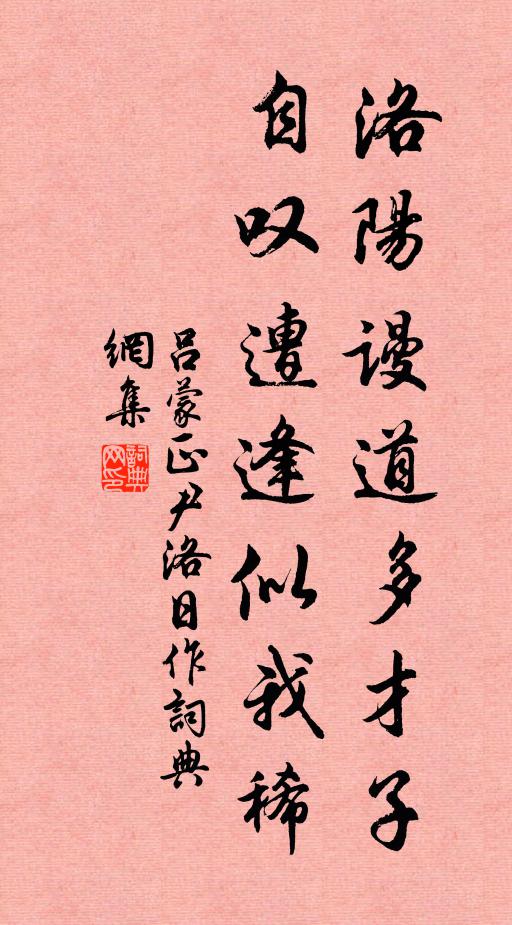 洛陽謾道多才子
自叹遭逢似我稀
呂蒙正尹洛日作詞典
網集
詞典网印